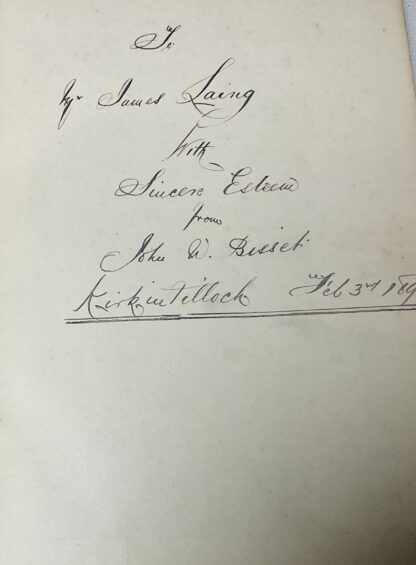 To
Mr James Laing
With
Sincere Esteem
from
John W. Bisset
Kirkintilloch Feb 3rd 189